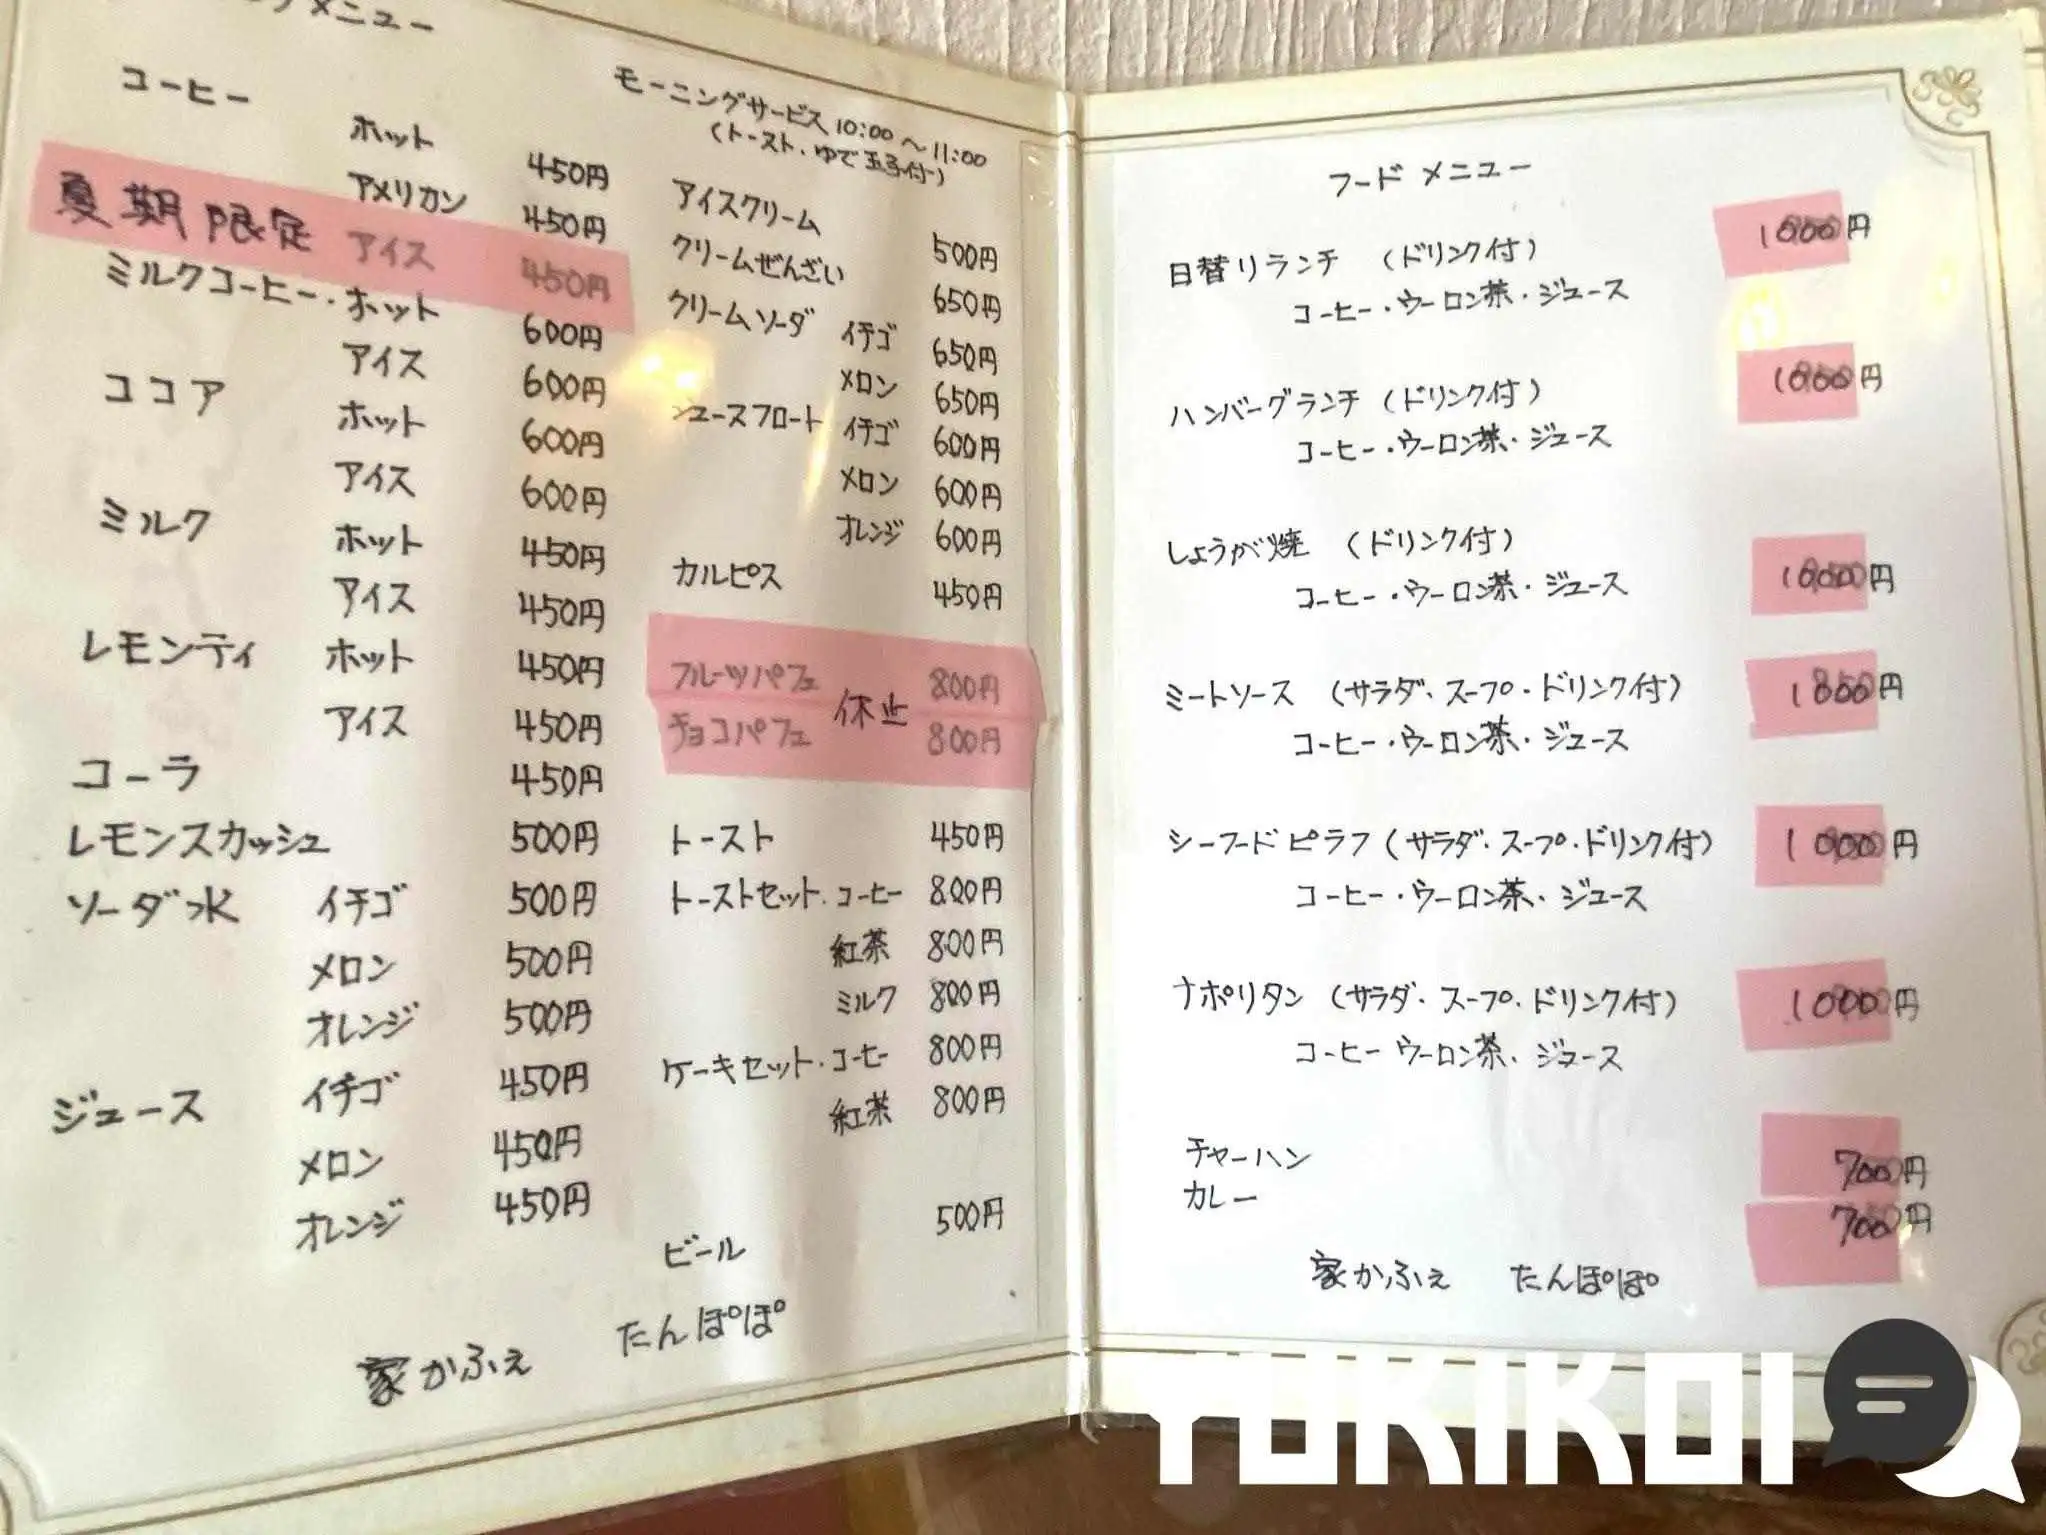 メニュー
コーヒー ホット 450円
アメリカン 450円
夏期限定 アイス 450円
ミルクコーヒー・ホット 600円
アイス 600円
ココア ホット 600円
アイス 600円
ミルク ホット 450円
アイス 450円
レモンティ ホット 450円
アイス 450円
コーラ 450円
レモンスカッシュ 500円
ソーダ水 イチゴ 500円
メロン 500円
オレンジ 500円
ジュース イチゴ 450円
メロン 450円
オレンジ 450円
家かふぇ たんぽぽ
モーニングサービス 10:00～11:00
(トースト・ゆで玉子付)
アイスクリーム 500円
クリームぜんざい 650円
クリームソーダ イチゴ 650円
メロン 650円
ジュースフロート イチゴ 600円
メロン 600円
オレンジ 600円
カルピス 450円
フルーツパフェ 800円
休止
チョコパフェ 800円
トースト 450円
トーストセット・コーヒー 800円
紅茶 800円
ミルク 800円
ケーキセット・コーヒー 800円
紅茶 800円
ビール 500円
フードメニュー
日替りランチ (ドリンク付) 1000円
コーヒー・ウーロン茶・ジュース
ハンバーグランチ (ドリンク付) 1000円
コーヒー・ウーロン茶・ジュース
しょうが焼 (ドリンク付) 1000円
コーヒー・ウーロン茶・ジュース
ミートソース (サラダ・スープ・ドリンク付) 1000円
コーヒー・ウーロン茶・ジュース
シーフードピラフ (サラダ・スープ・ドリンク付) 1000円
コーヒー・ウーロン茶・ジュース
ナポリタン (サラダ・スープ・ドリンク付) 1000円
コーヒー ウーロン茶・ジュース
チャーハン 700円
カレー 700円
家かふぇ たんぽぽ
YUKIKOI